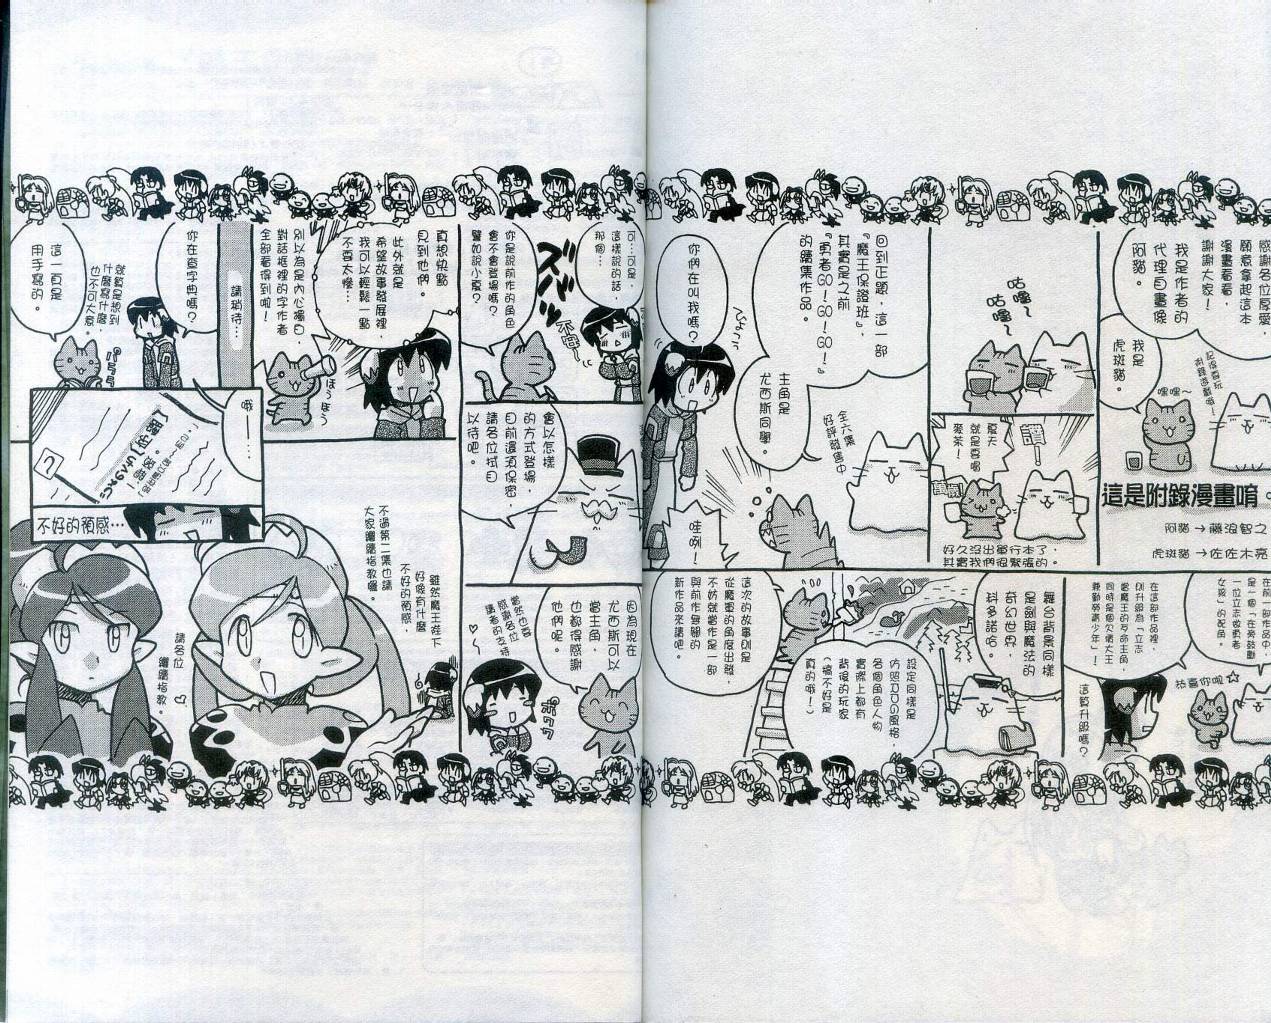 感謝各位厚愛，
願意拿起這本
漫畫看，
謝謝大家！
我是作者的
代理自畫像
阿貓。
我是
虎斑貓。
嘿嘿～
這是附錄漫畫唷。
阿貓→藤浪智之
虎斑貓→佐佐木亮
咕嚕～
咕嚕～
讚！
夏天
就是要喝
麥茶！
好久沒出單行本了，
其實我們很緊張的。
回到正題，這一部
『魔王保證班』，
其實是之前
『勇者GO！GO！GO！』
的續集作品。
全六集
好評發售中
主角是
尤西斯同學。
你們在叫我嗎？
哇咧！
在前一部作品
是一個「在旁鼓勵
一位立志做勇者
女孩」的配角。
在這部作品裡，
則升級為「立志
當魔王的歹命主角，
同時是個欠債大王
兼勤勞青少年」！
恭喜你啦☆
這算升級嗎？
舞台背景同樣
是劍與魔法的
奇幻世界，
科多諾哈。
設定同樣是
各個角色人物
實際上都有
背後的玩家
（搞不好是
真的哦！）
這次的故事則是
從魔軍的角度出發，
不妨就當作是一部
與前作無關的
新作品來讀吧。
可…可是，
這樣說的話，
那個…
你是說前作的角色
會不會登場嗎？
譬如說小夏？
會以怎樣
的方式登場，
目前還須保密，
請各位拭目
以待吧。
因為現在
尤西斯可以
當主角，
也都得感謝
他們呢。
當然也要
感謝各位
讀者的支持
真想快點
見到他們。
此外就是
希望故事發展裡
我可以輕鬆一點
不要太慘…
別以為是內心獨白，
對話框裡的字作者
全部看得到啦！
ほうほう
請稍待…
你在查字典嗎？
就算是想到
什麼寫什麼，
也不可大意。
這一頁是
用手寫的。
哦——…
不好的預感…
雖然魔王在下
好像有什麼
不好的預感，
不過第二集也請
大家繼續指教囉。
請各位
繼續指教。♡